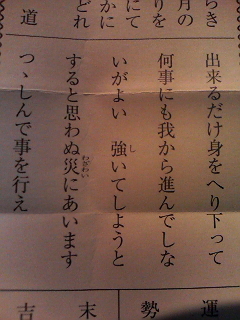 らき
月の
りを
にて
かに
どれ
道
出来るだけ身をへり下って
何事にも我から進んでしな
いがよい 強いてしようと
すると思わぬ災にあいます
つゝしんで事を行え
し
わざわい
運
勢
末
吉